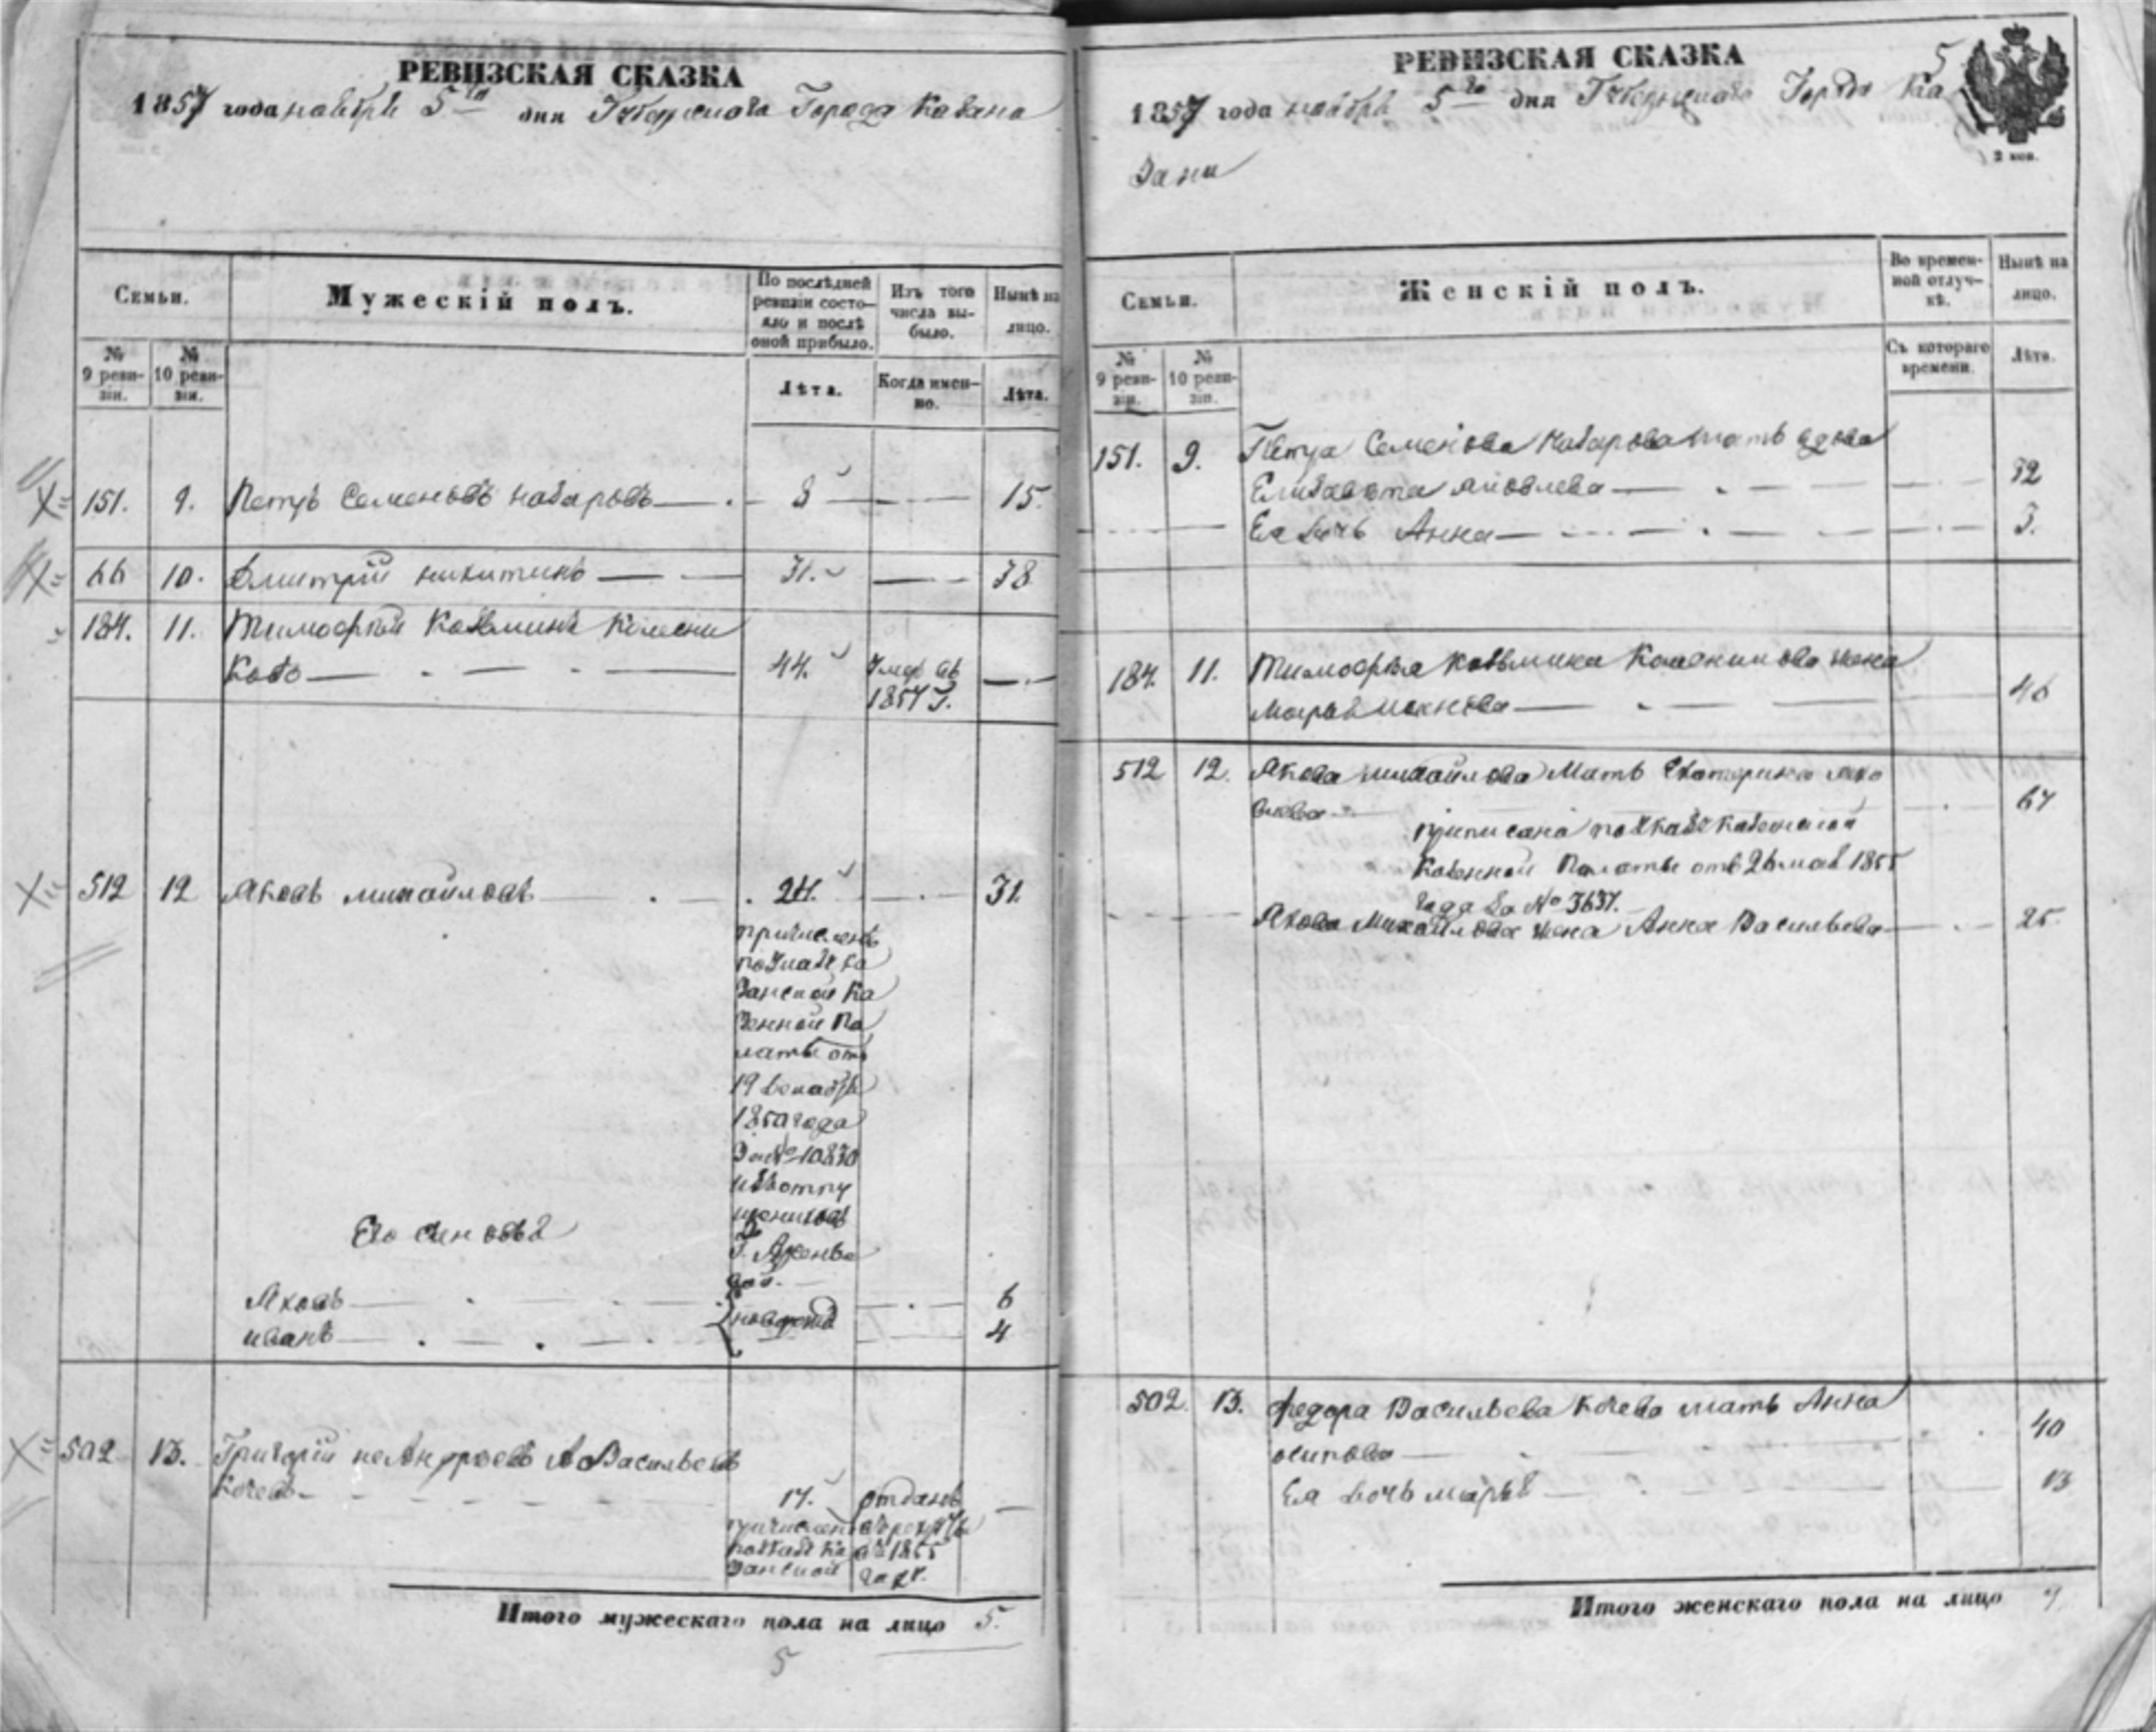 РЕВИЗСКАЯ СКАЗКА
1857 года ноября 5го дня Губернскаго Города Казани
Семьи.
Мужескій полъ.
По послѣдней ревизіи состояло и послѣ оной прибыло.
Изъ того числа выбыло.
Нынѣ на лицо.
№ 9 ревизіи.
№ 10 ревизіи.
Лѣта.
Когда именно.
Лѣта.
151. 9. Петръ Семеновъ Назаровъ 8 15.
66 10. Дмитрій Никитинъ 31. 38
184. 11. Тимофѣй Козьминъ Колесни
ковъ 44. Умеръ въ
1854 г.
512 12 Яковъ Михайловъ 24. 31.
причисленъ
по указу Ка
занской Ка
зенной Па
латы отъ
19 декабря
1850 года
За № 10830
изъ отпу
щенниковъ
Г.
Его сыновья
Яковъ 6
Иванъ 4
новорожд
502 13. Григорій не Андреевъ а Васильевъ
Кочевъ 17. отданъ
причисленъ въ рекруты
по указу Ка въ 1855
занской году.
Итого мужескаго пола на лицо 5.
5
РЕВИЗСКАЯ СКАЗКА
5
1857 года ноября 5го дня Губернскаго Города Ка
зани
2 коп.
Семьи.
Женскій полъ.
Во временной отлучкѣ.
Нынѣ на лицо.
№ 9 ревизіи.
№ 10 ревизіи.
Съ котораго времени.
Лѣта.
151. 9. Петра Семенова Назарова мать вдова
Елизавета Яковлева 52
Ея дочь Анна 3.
184. 11. Тимофѣя Козьмина Колесникова жена
Марья 46
512 12. Якова Михайлова Мать Екатерина Яко
влева 67
приписана по указу Казанской
Казенной Палаты отъ 26 мая 1855
года За № 3637.
Якова Михайлова жена Анна Васильева 25.
502. 13. Федора Васильева Кочева мать Анна
Осипова 40
Ея дочь Марья 13
Итого женскаго пола на лицо 7